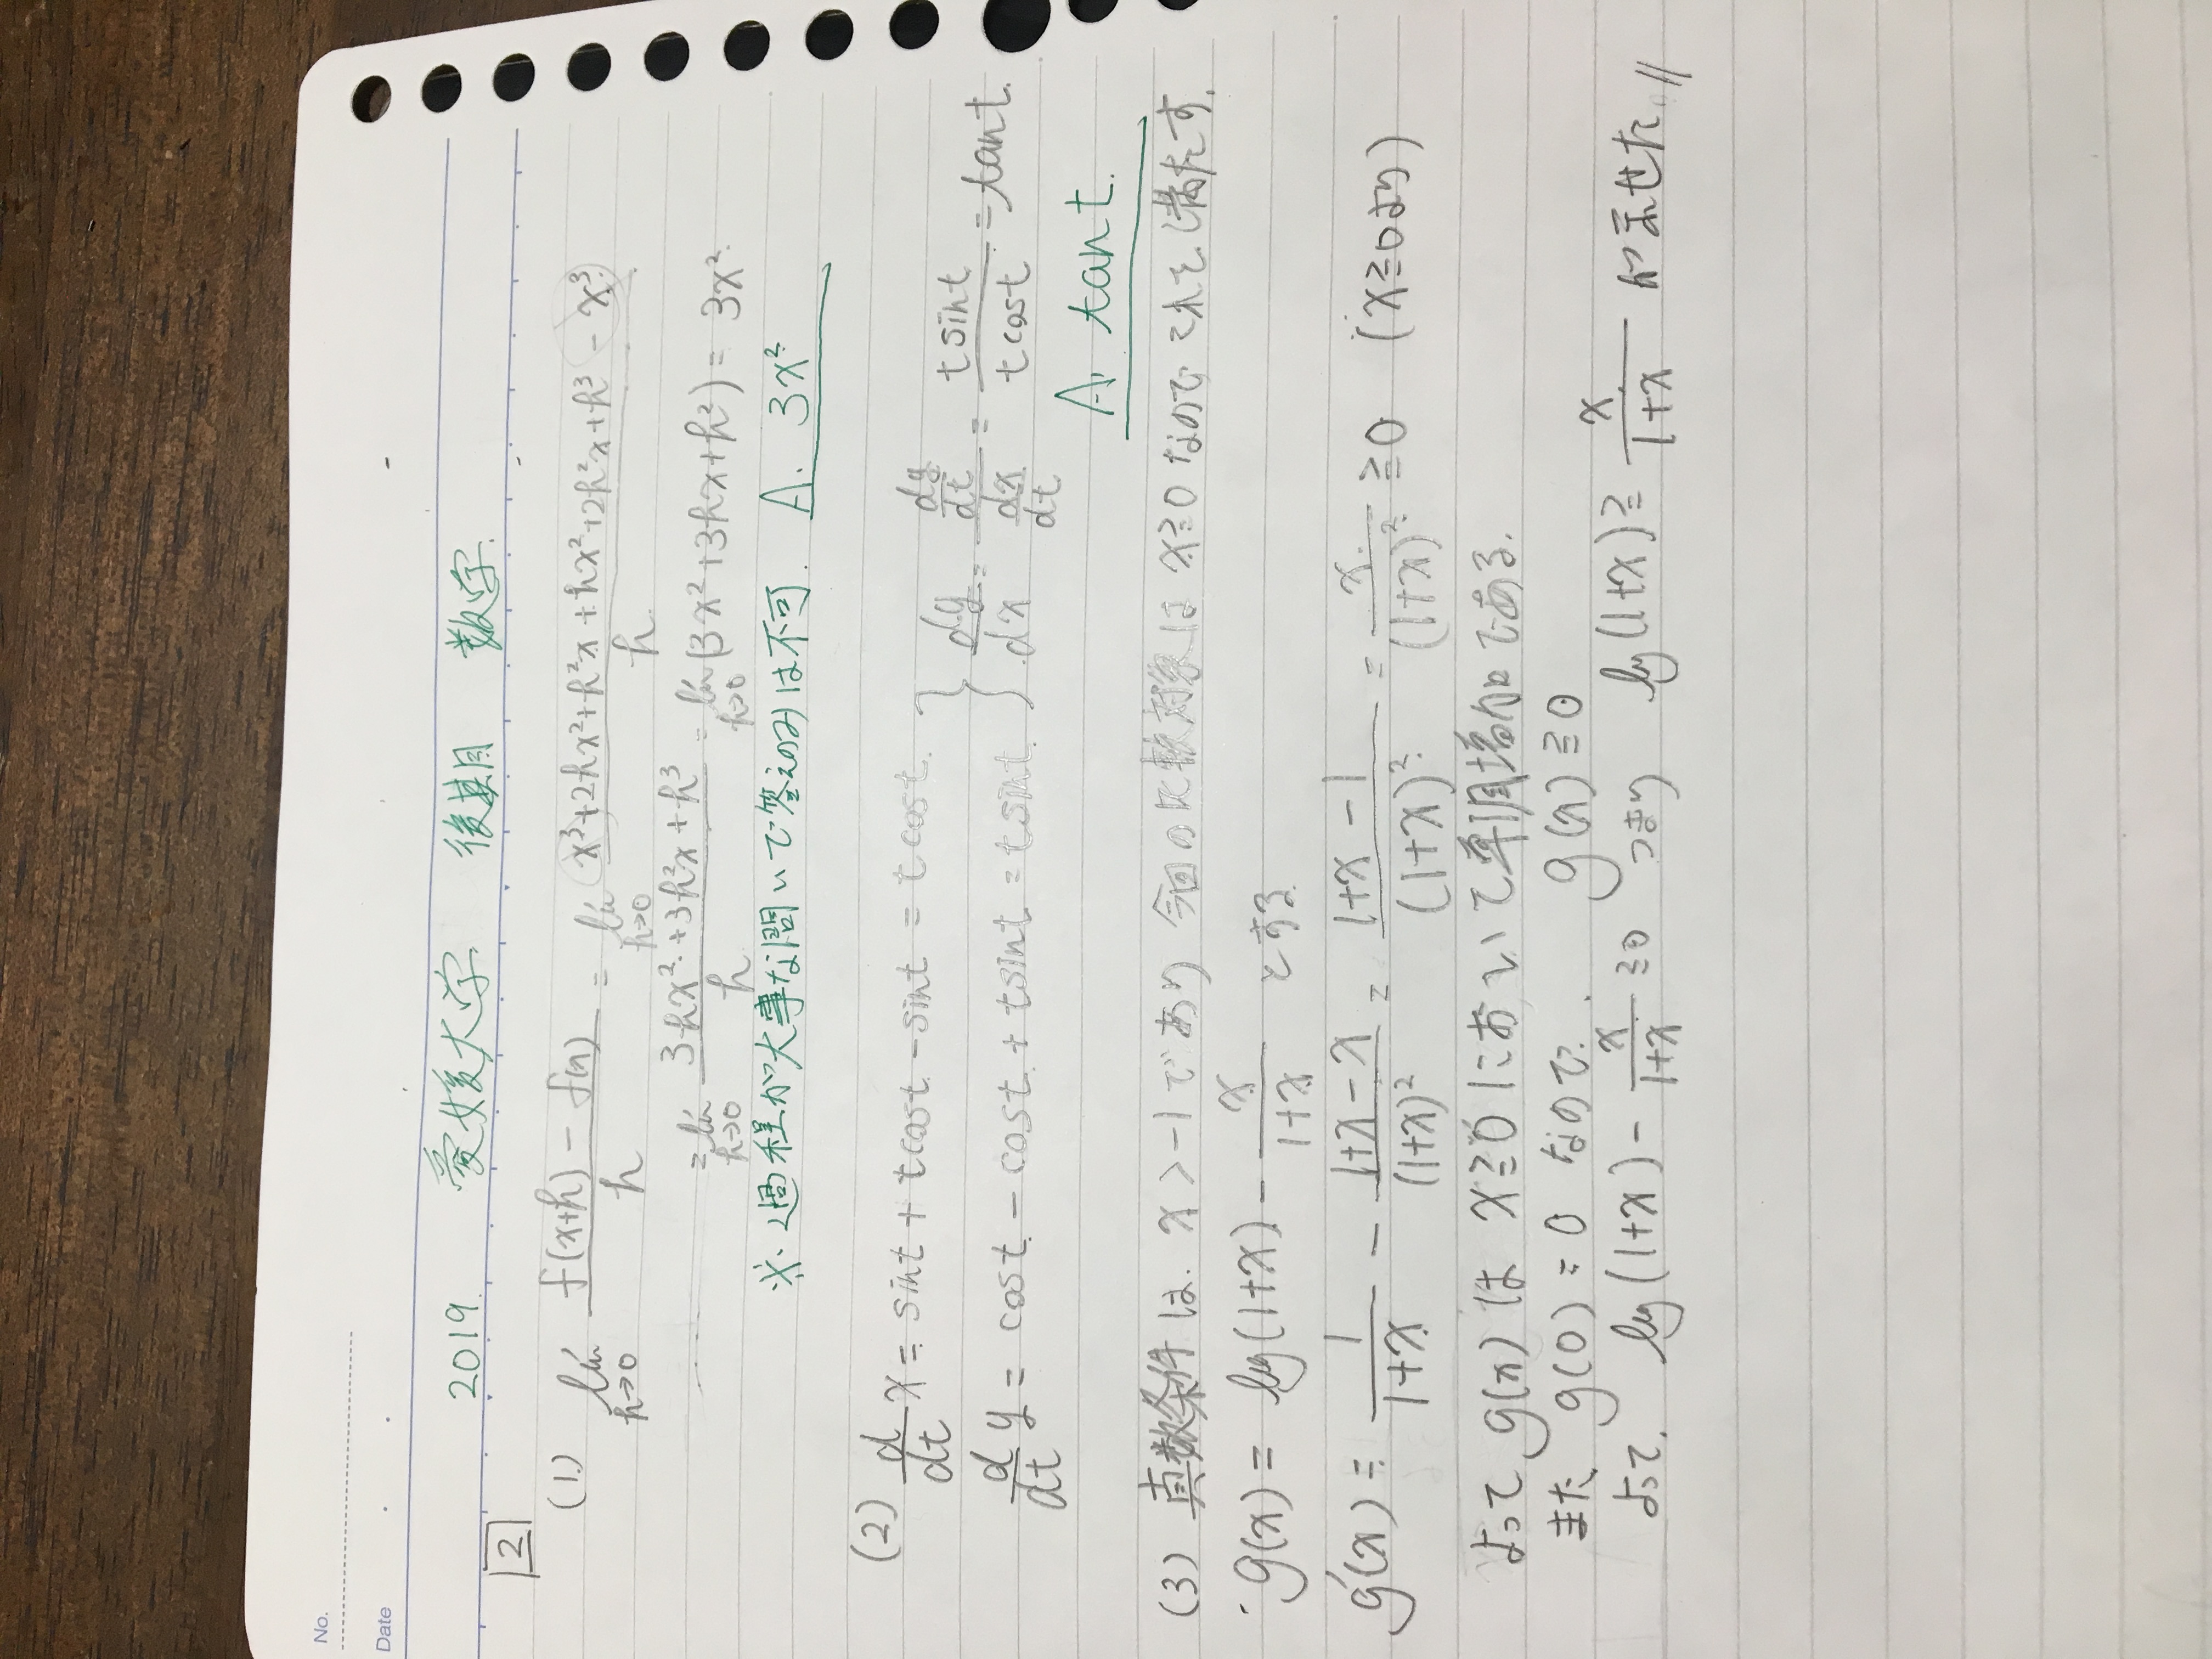 No.
Date
2019 愛媛大学 後期 数学.
2
(1) lim h→0 f(x+h) - f(x) / h = lim h→0 x³+2hx²+h²x+hx²+2h²x+h³-x³ / h
= lim h→0 3hx²+3h²x+h³ / h = lim h→0 (3x²+3hx+h²) = 3x²
※過程が大事な問いで答えのみは不可. A. 3x²
(2) d/dt x = sint + tcost - sint = tcost.
d/dt y = cost - cost + tsint = tsint } dy/dx = dy/dt / dx/dt = tsint / tcost = tant.
A tant.
(3) 真数条件は. x>-1であり 今回の比較対象は x≧0 なのでこれを満たす.
g(x) = log(1+x) - x/1+x とする
g'(x) = 1/1+x - 1+x-x/(1+x)² = 1+x-1/(1+x)² = x/(1+x)² ≧0 (x≧0より)
よって g(x)は x≧0において単調増加である.
また g(0)=0 なので. g(x)≧0
よって. log(1+x) - x/1+x ≧0 つまり log(1+x)≧ x/1+x が示せた.//